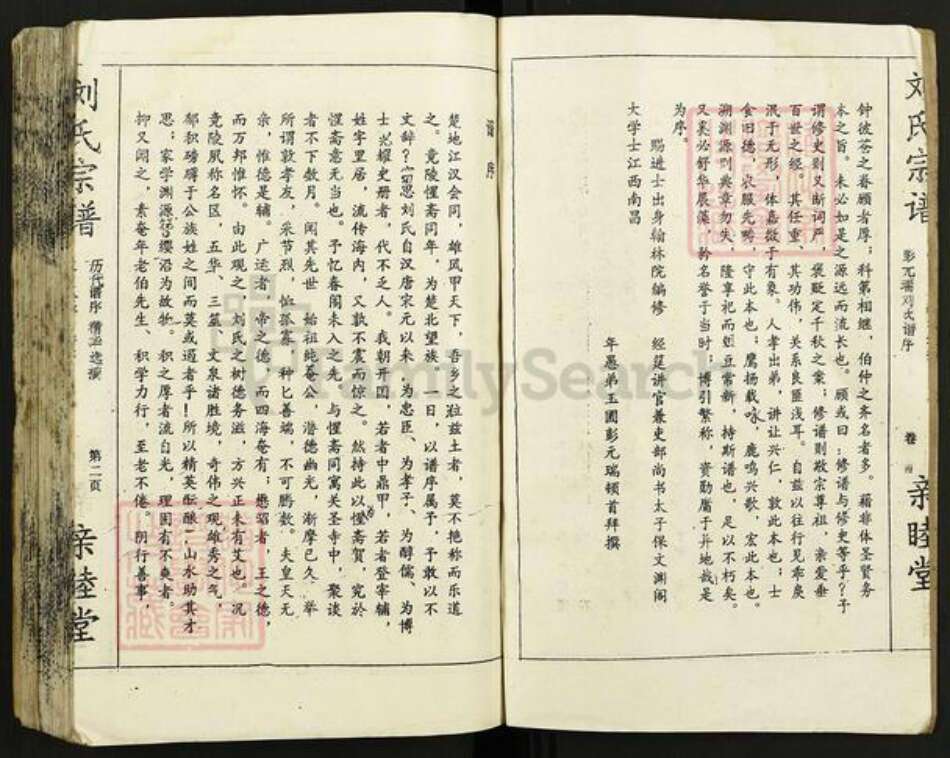 刘氏宗谱
彭元瑞刘氏谱序
卷
亲睦堂
钟彼苍之眷顾者厚；科第相继，伯仲之齐名者多。藉非体圣贤务
本之旨。未必如是之源远而流长也。顾或曰：修谱与修史等乎？予
谓修史则又断词严，褒贬定千秋之案；修谱则敬宗尊祖，亲爱垂
百世之经。其任重、其功伟，关系良匪浅耳。自兹以往行见乖戾
泯于无形，体嘉微于有象。人孝出弟，讲让兴仁，敦此本也；士
食旧德，农服先畴，守此本也；鹰扬载咏，鹿鸣兴歌，宏此本也。
溯渊源则典章勿失，隆享祀而俎豆常新，持斯谱也，足以不朽矣。
又奚必舒华展藻，矜名誉于当时；博引繁称，资勋腐于异地哉是
为序。
赐进士出身翰林院编修 经筵讲官兼吏部尚书太子保文渊阁
大学士江西南昌
年愚弟玉圃彭元瑞顿首拜撰
谱序
楚地江汉会同，雄风甲天下，吾乡之粒兹土者，莫不艳称而乐道
之。竟陵惺斋同年，为楚北望族，一日，以谱序属予，予敢以不
文辞？窃思刘氏自汉唐宋元以来，为忠臣、为孝子、为醇儒、为博
士光耀史册者，代不乏人。我朝开国，若者中鼎甲，若者登宰辅，
姓字里居，流传海内，又孰不震而惊之。然持此以惺斋贺，究于
惺斋意无当也。予忆春闱未入之先。与惺斋同寓关圣寺中，聚谈
者不下数月。闻其先世 始祖纯菴公，潜德幽光，渐摩已久。举
所谓敦孝友、采节烈，恤孤寡，种匕善端，不可腾数。夫皇天无
亲，惟德是辅。广运者，帝之德，而四海奄有；懋昭者，王之德，
而万邦惟怀。由此观之，刘氏之树德务滋，方兴正未有艾也。况
竟陵夙称名区，五华、三筮、文泉诸胜境，奇伟之观雄秀之气，
郁积磅礴于公族姓之间而莫或遏者乎！所以精英酝酿，山水助其才
思；家学渊源簪缨沿为故物。积之厚者流自光，理固有不爽者。
抑又闻之，素菴年老伯先生、积学力行，至老不倦，阴行善事，
刘氏宗谱
历代谱序 惰斋逸撰
第二页
亲睦堂
FamilySearch